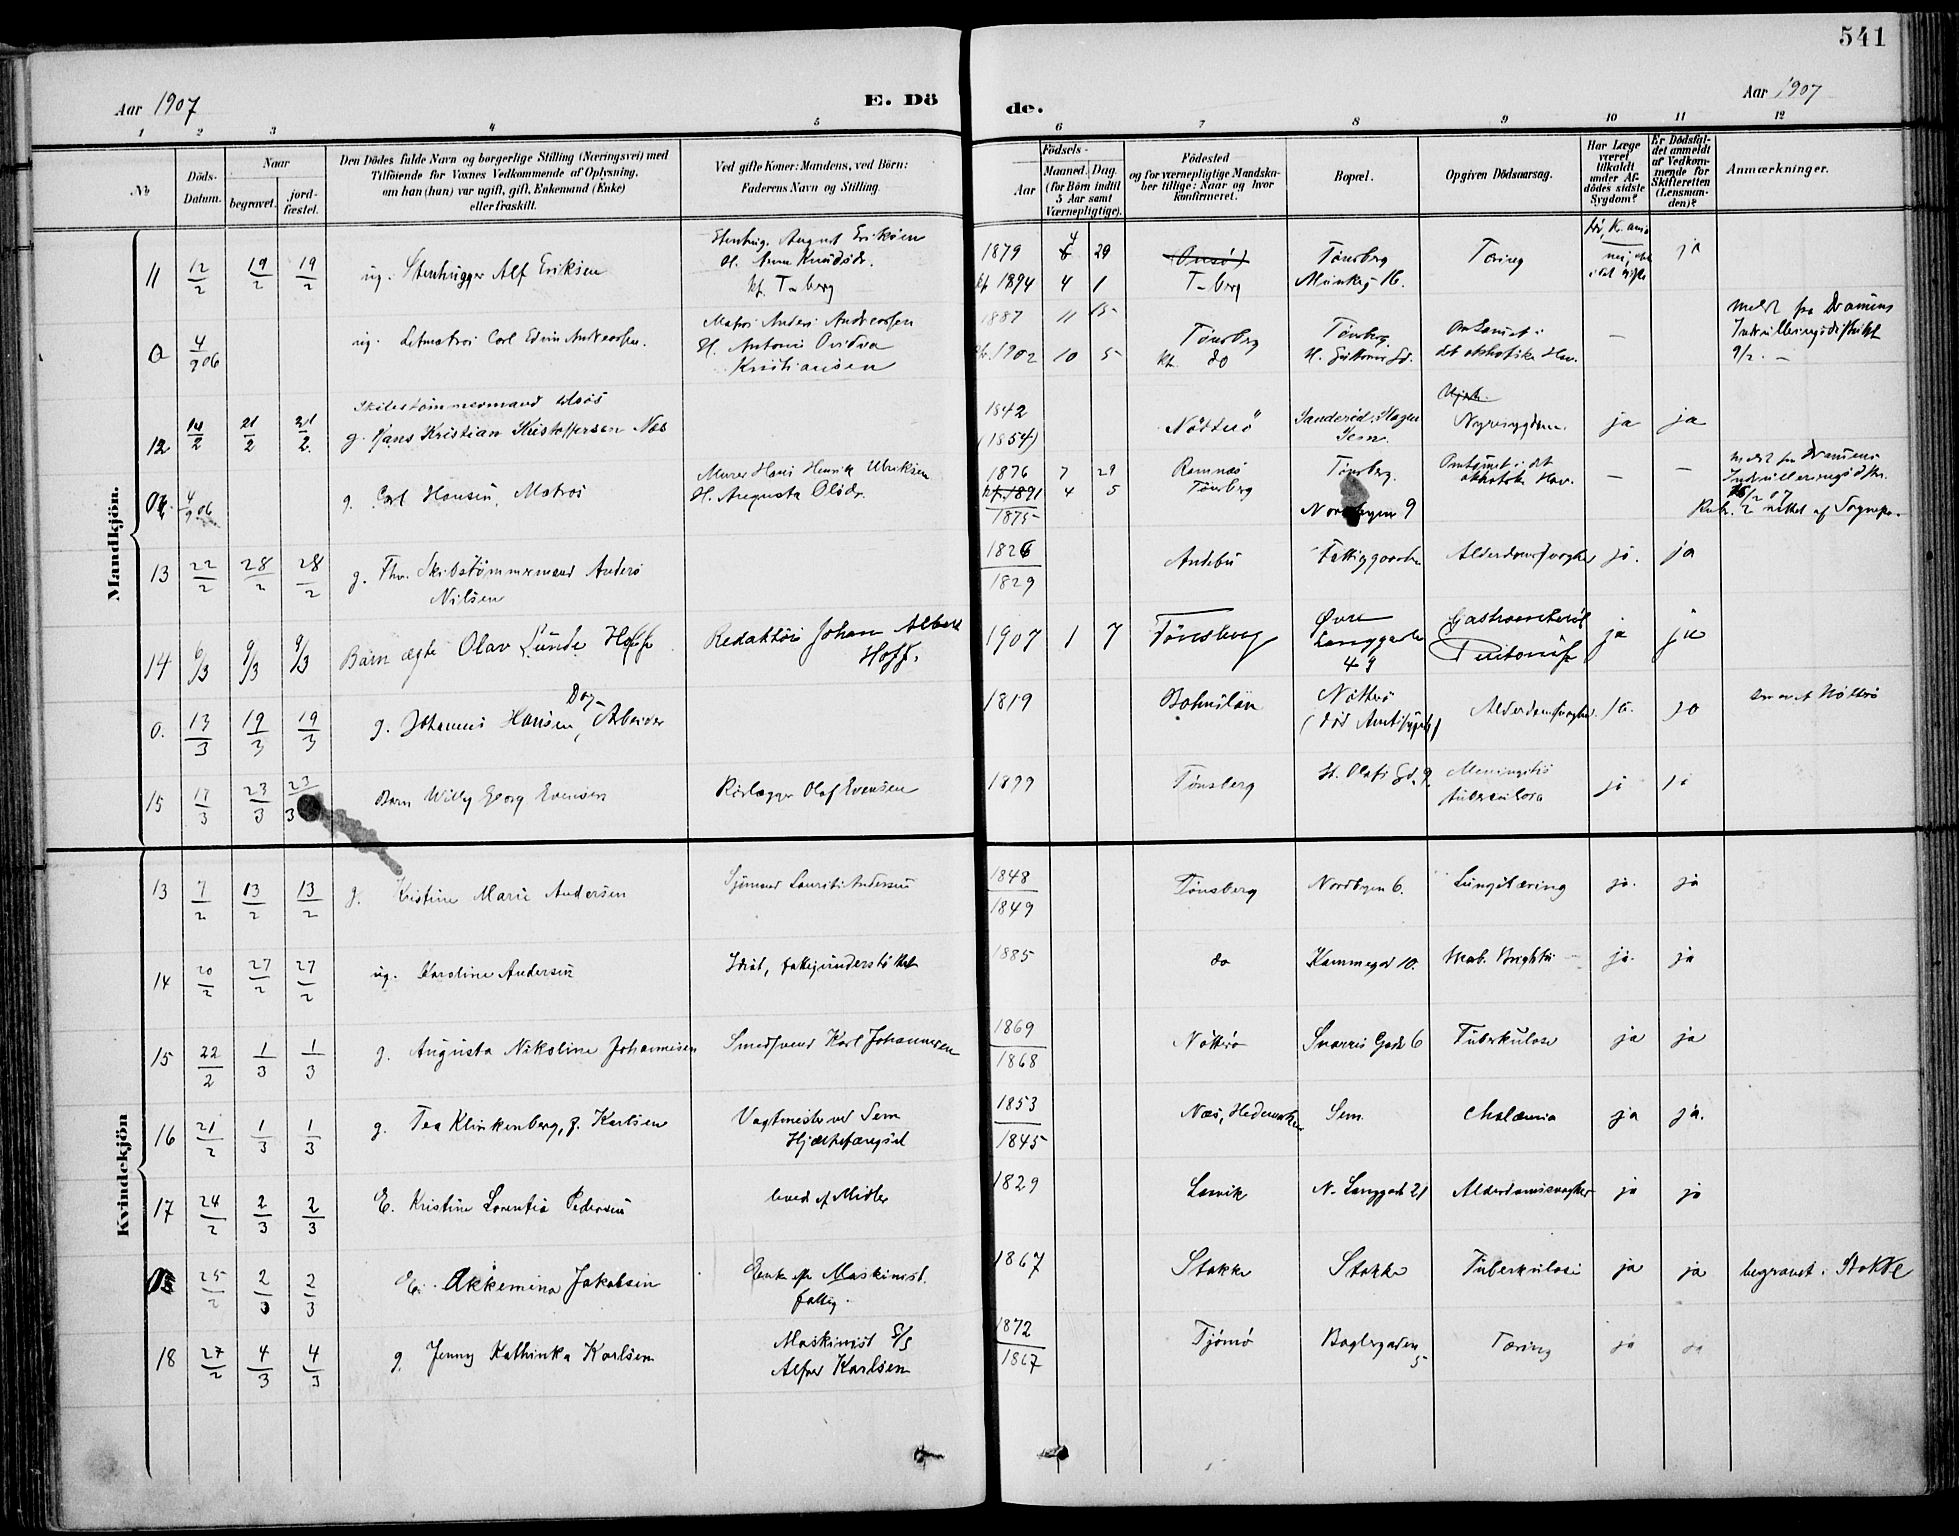 541
Aar 1907
E. Dö
de.
Aar 1907
1 2 3 4 5 6 7 8 9 10 11 12
№
Döds-Datum.
Naar
begravet.
jord-fæstet.
Den Dödes fulde Navn og borgerlige Stilling (Næringsvei) med
Tilföiende for Voxnes Vedkommende af Oplysning,
om han (hun) var ugift, gift, Enkemand (Enke)
eller fraskilt.
Ved gifte Koner: Mandens, ved Börn:
Faderens Navn og Stilling.
Födsels-
Aar
Maaned. Dag.
(for Börn indtil
5 Aar samt
Værnepligtige).
Födested
og for værnepligtige Mandska-
ber tillige: Naar og hvor
konfirmeret.
Bopæl.
Opgiven Dödsaarsag.
Har Læge
været
tilkaldt
under Af-
dödes sidste
Sygdom?
Er Dödsfal-
det anmeldt
af Vedkom-
mende for
Skifteretten
(Lensman-
den)?
Anmærkninger.
Mandkjön.
11 12/2 19/2 19/2 ug. Stenhugger Alf Eriksen
Stenhug. August Eriksen
H. Anna Knudsdr.
kf. T-berg
1879 4 29 Tönsberg Tæring ja
kf. 1894 4 1 T-berg Munkeg 16.
0 4/9 06 ug. Letmatros Carl Edvin Andreassen.
Matros Anders Andreassen
H. Antonie Ovidia
Kristiansen
1887 11 15 Tönsberg Tönsberg Omkommet i
kf. 1902 10 5 kf. do det okhotske Hav. —
meldt fra Dramens
Indrulleringsdistrikt
9/2. —
12 14/2 21/2 21/2 Skibstömmermand
g. Hans Kristian Kristoffersen Næs
1842 (1854) Nötterö Sanderöd, Slagen Sem. Nyresygdom. ja ja
0 4/9 06 g. Carl Hansen, Matros
Murer Hans Henrik Ulriksen
H. Augusta Olsdr.
1876 7 29 Ramnæs Tönsberg. Omkommet i det
kf. 1891 4 5 Tönsberg okhotske Hav. — —
1875 Nordbyen 9
meldt fra Dramens
Indrulleringsdistr.
Rub. 2 rettet af Sognepr.
13 22/2 28/2 28/2 g. Fhv. Skibstömmermand Anders
Nilsen
1826 1829 Andebu Fattiggaarden Alderdomssvaghed ja. ja
14 6/3 9/3 9/3 Barn ægte Olav Lunde Hoff
Redaktör Johan Albert
Hoff.
1907 1 7 Tönsberg Øvre
Langgade
49
Gastroenterit
Peritonit ja ja
0. 13/3 19/3 19/3 g. Johannes Hansen, Dag-Arbeider
1819 Bohuslän Nötterö
(död Amtssygeh)
Alderdomssvaghed. ja. ja
15 17/3 23/3 23/3 Barn Willy Georg Evensen
Rörlægger Olaf Evensen
1899 Tönsberg St. Olafs Gd. 9 Meningitis
tuberculosa ja ja
Kvindekjön
13 7/2 13/2 13/2 g. Kristine Marie Andersen
Sjömand Laurits Andersen
1848 1849 Tönsberg Nordbyen 6. Lungetæring ja. ja
14 20/2 27/2 27/2 ug. Karoline Andersen
Idiot, fattigunderstöttet
1885 do Kammegad 10. Morb. Brightii — ja. ja
15 22/2 1/3 1/3 g. Augusta Nikoline Johannesen
Smedsvend Karl Johannesen
1869 1868 Nötterö Snorres Gade 6 Tuberkulose ja ja
16 21/2 1/3 1/3 g. Tea Klinkenberg, f. Karlsen
Vagtmester ved Sem
Hjælpefængsel
1853 1845 Næs, Hedemarken Sem. ja ja.
17 24/2 2/3 2/3 E. Kristine Lorentia Pedersen
levede af Midler
1829 Larvik N. Langgade 21 Alderdomssvaghed ja ja
25/2 2/3 2/3 E. Akkemina Jakobsen
Enke efter Maskinist.
fattig.
1867 Stokke Stokke Tuberkulose ja ja begravet i Stokke
18 27/2 4/3 4/3 g. Jenny Kathinka Karlsen
Maskinist S/S
Alfred Karlsen
1872 1867 Tjömö Baglergaden
5 Tæring ja ja